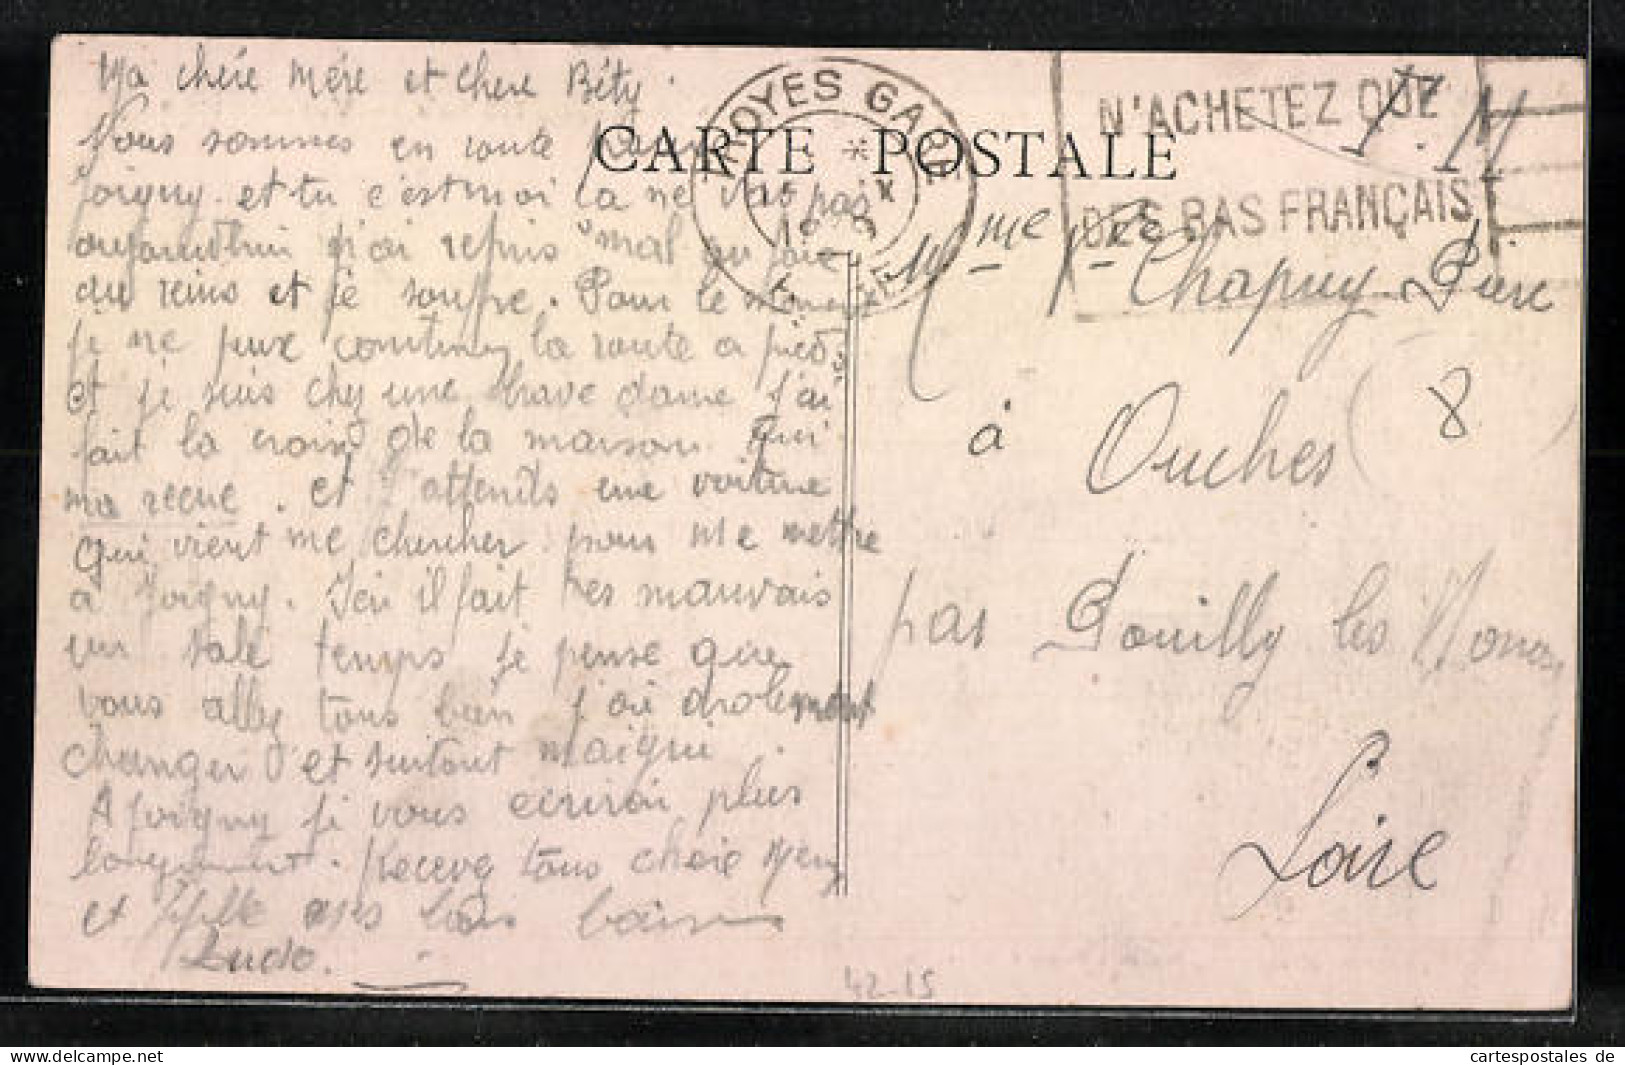 Ma chére Mére et chere Béty.
Nous sommes en route pour
Joigny. et tu c'est moi la ne vas pas
aujourdhui j'ai repris mal
du reins et je souffre. Pour le moment
je ne peux continuez la route a pied
et je suis chez une brave dame j'ai
fait la de la maison qui
ma recue. et j'attends une voiture
qui vient me chercher pour me mettre
a Joigny. Ici il fait tres mauvais
un sale temps je pense que
vous allez tous bien j'ai drolement
changer et surtout maigri.
A Joigny je vous ecrirai plus
longuement. Recevez tous chere Mere
et mes bons baisers
Ludo.
CARTE POSTALE
TROYES GARE
N'ACHETEZ QUE
DES BAS FRANÇAIS
F. M
Mme Vve
Chapuy Pierre
à Ouches (8)
par Pouilly les Nonains
Loire
42-15
cartespostales de